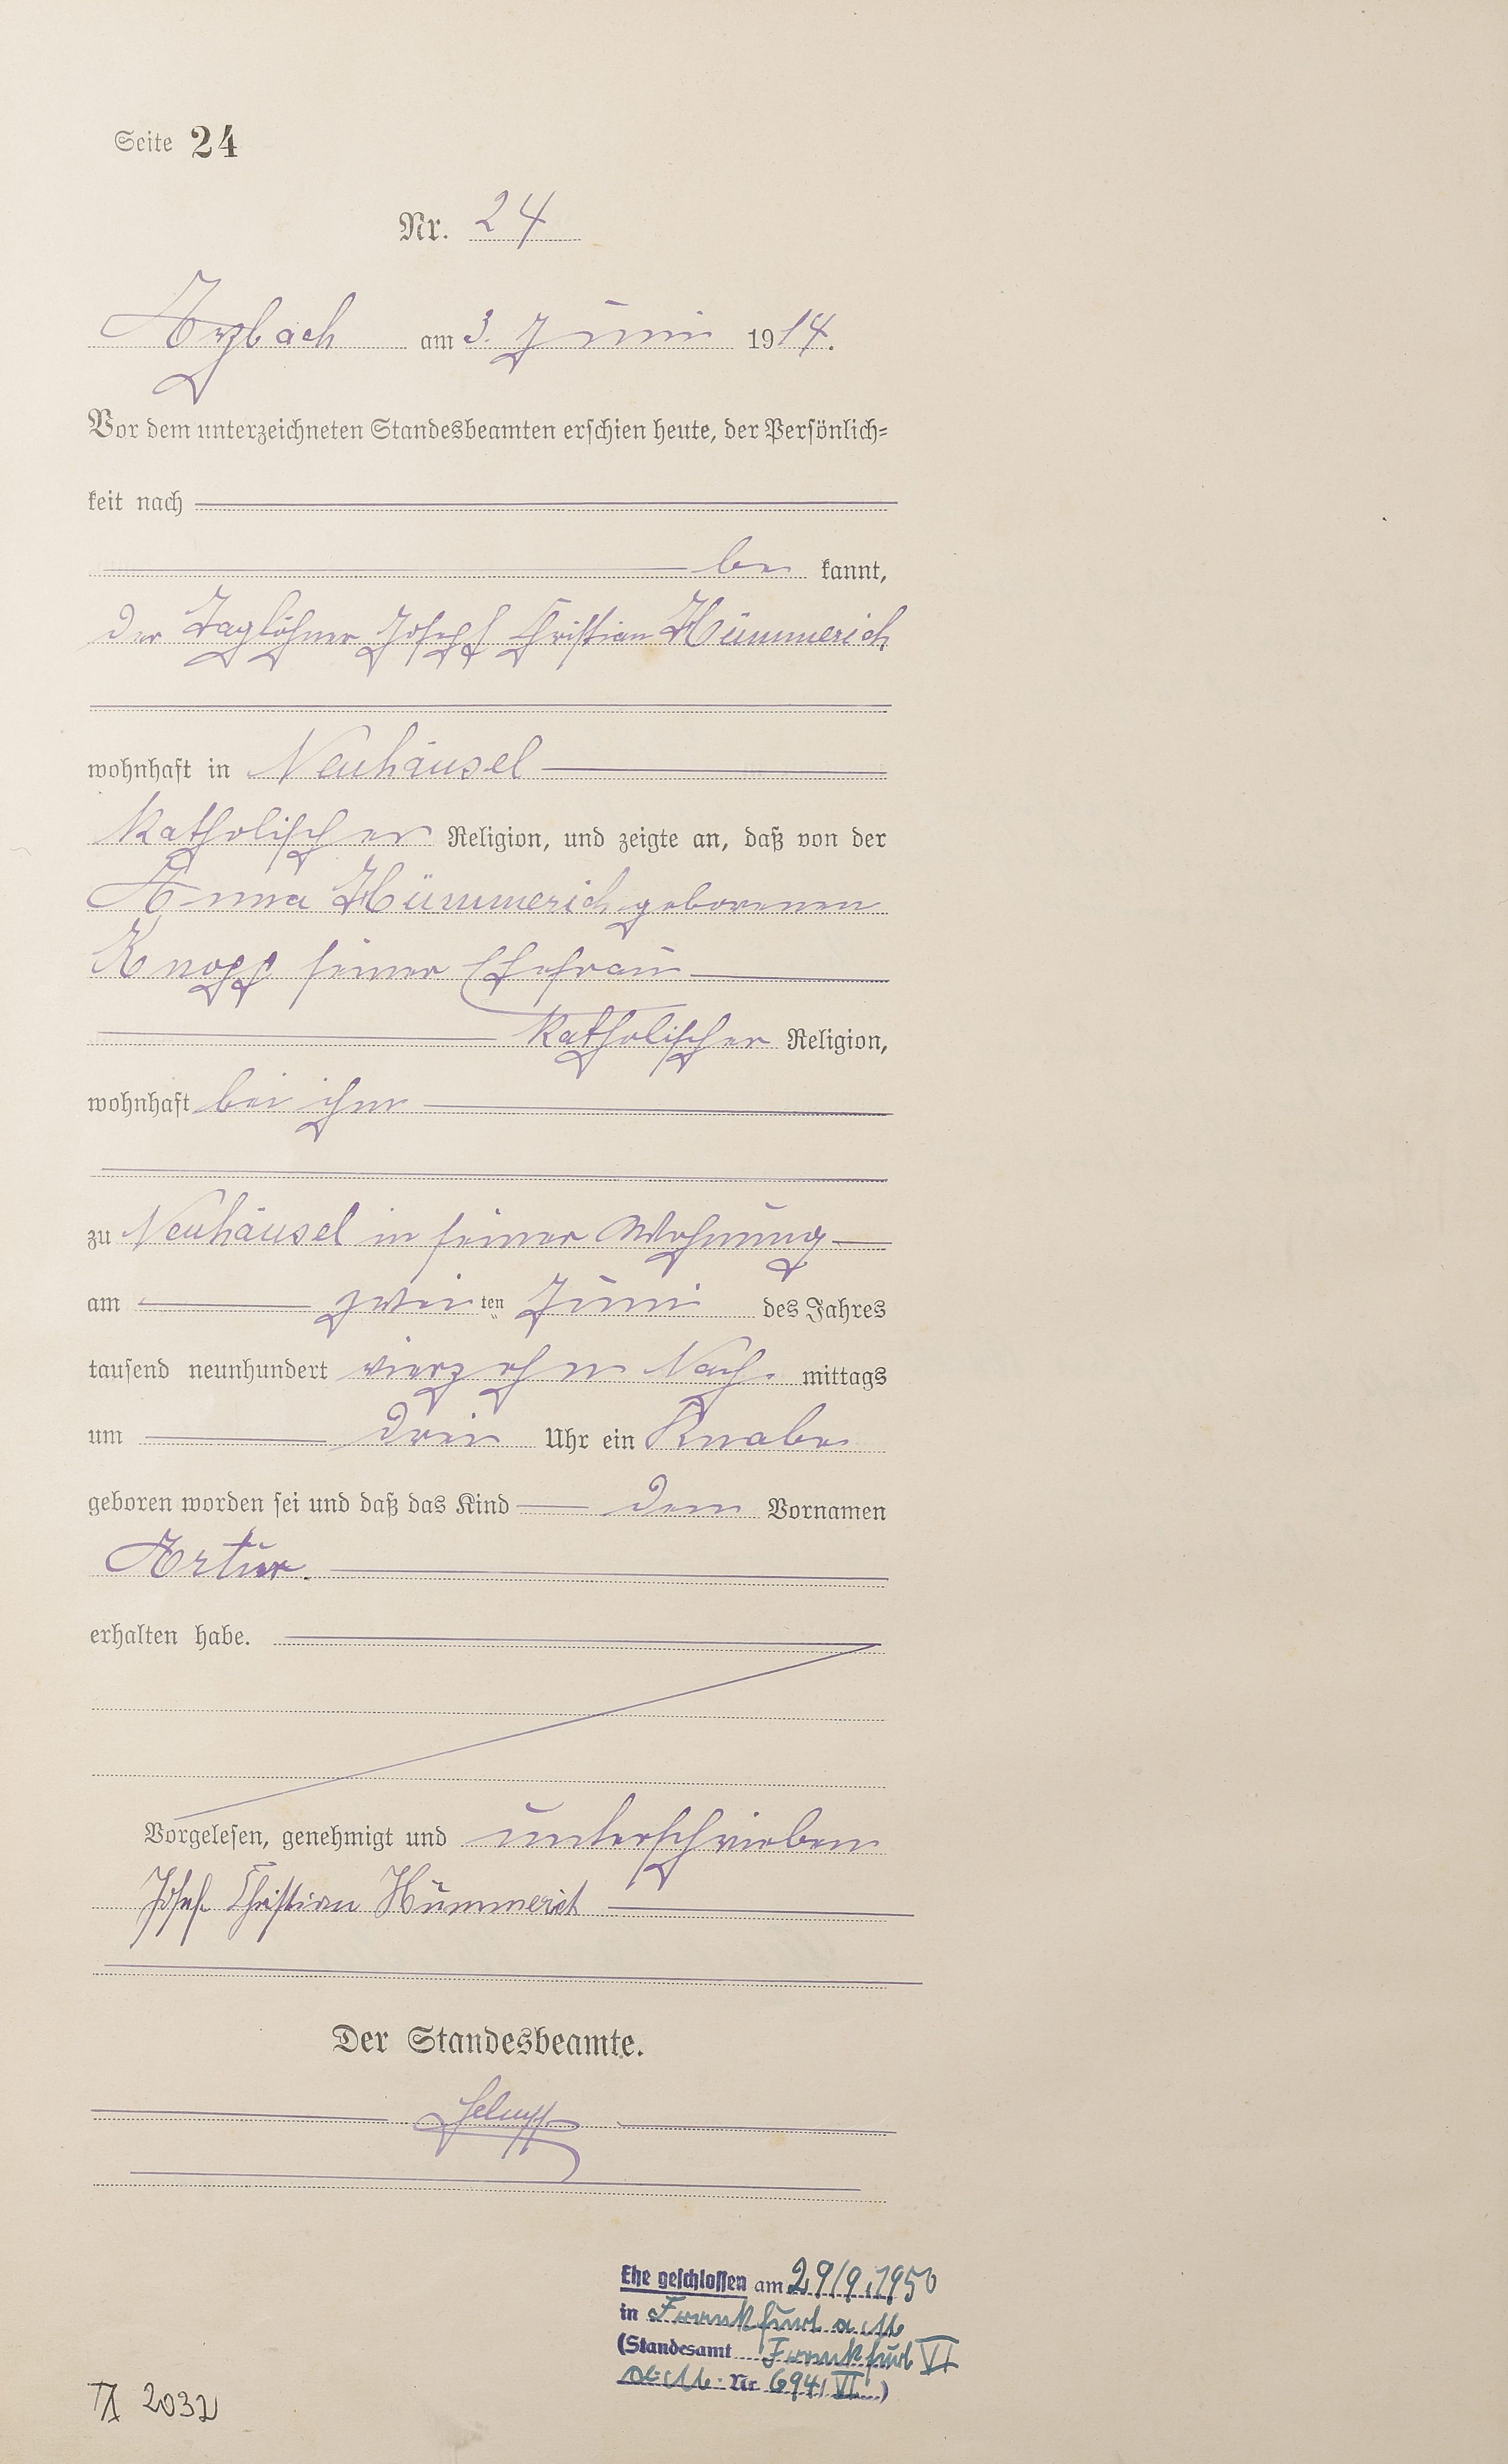 Seite 24
Nr. 24
Arzbach am 3. Juni 1914.
Vor dem unterzeichneten Standesbeamten erschien heute, der Persönlich=
keit nach
be kannt,
der Taglöhner Joseph Christian Hümmerich
wohnhaft in Neuhäusel
katholischer Religion, und zeigte an, daß von der
Anna Hümmerich geborenen
Knopp seiner Ehefrau
katholischer Religion,
wohnhaft bei ihm
zu Neuhäusel in seiner Wohnung
am zweiten Juni des Jahres
tausend neunhundert vierzehn Nach. mittags
um drei Uhr ein Knabe
geboren worden sei und daß das Kind den Vornamen
Artur.
erhalten habe.
Vorgelesen, genehmigt und unterschrieben
Josef Christian Hümmerich
Der Standesbeamte.
Ehe geschlossen am 29/9.1950
in Frankfurt a M
(Standesamt Frankfurt VI
a. M. Nr 694/VI)